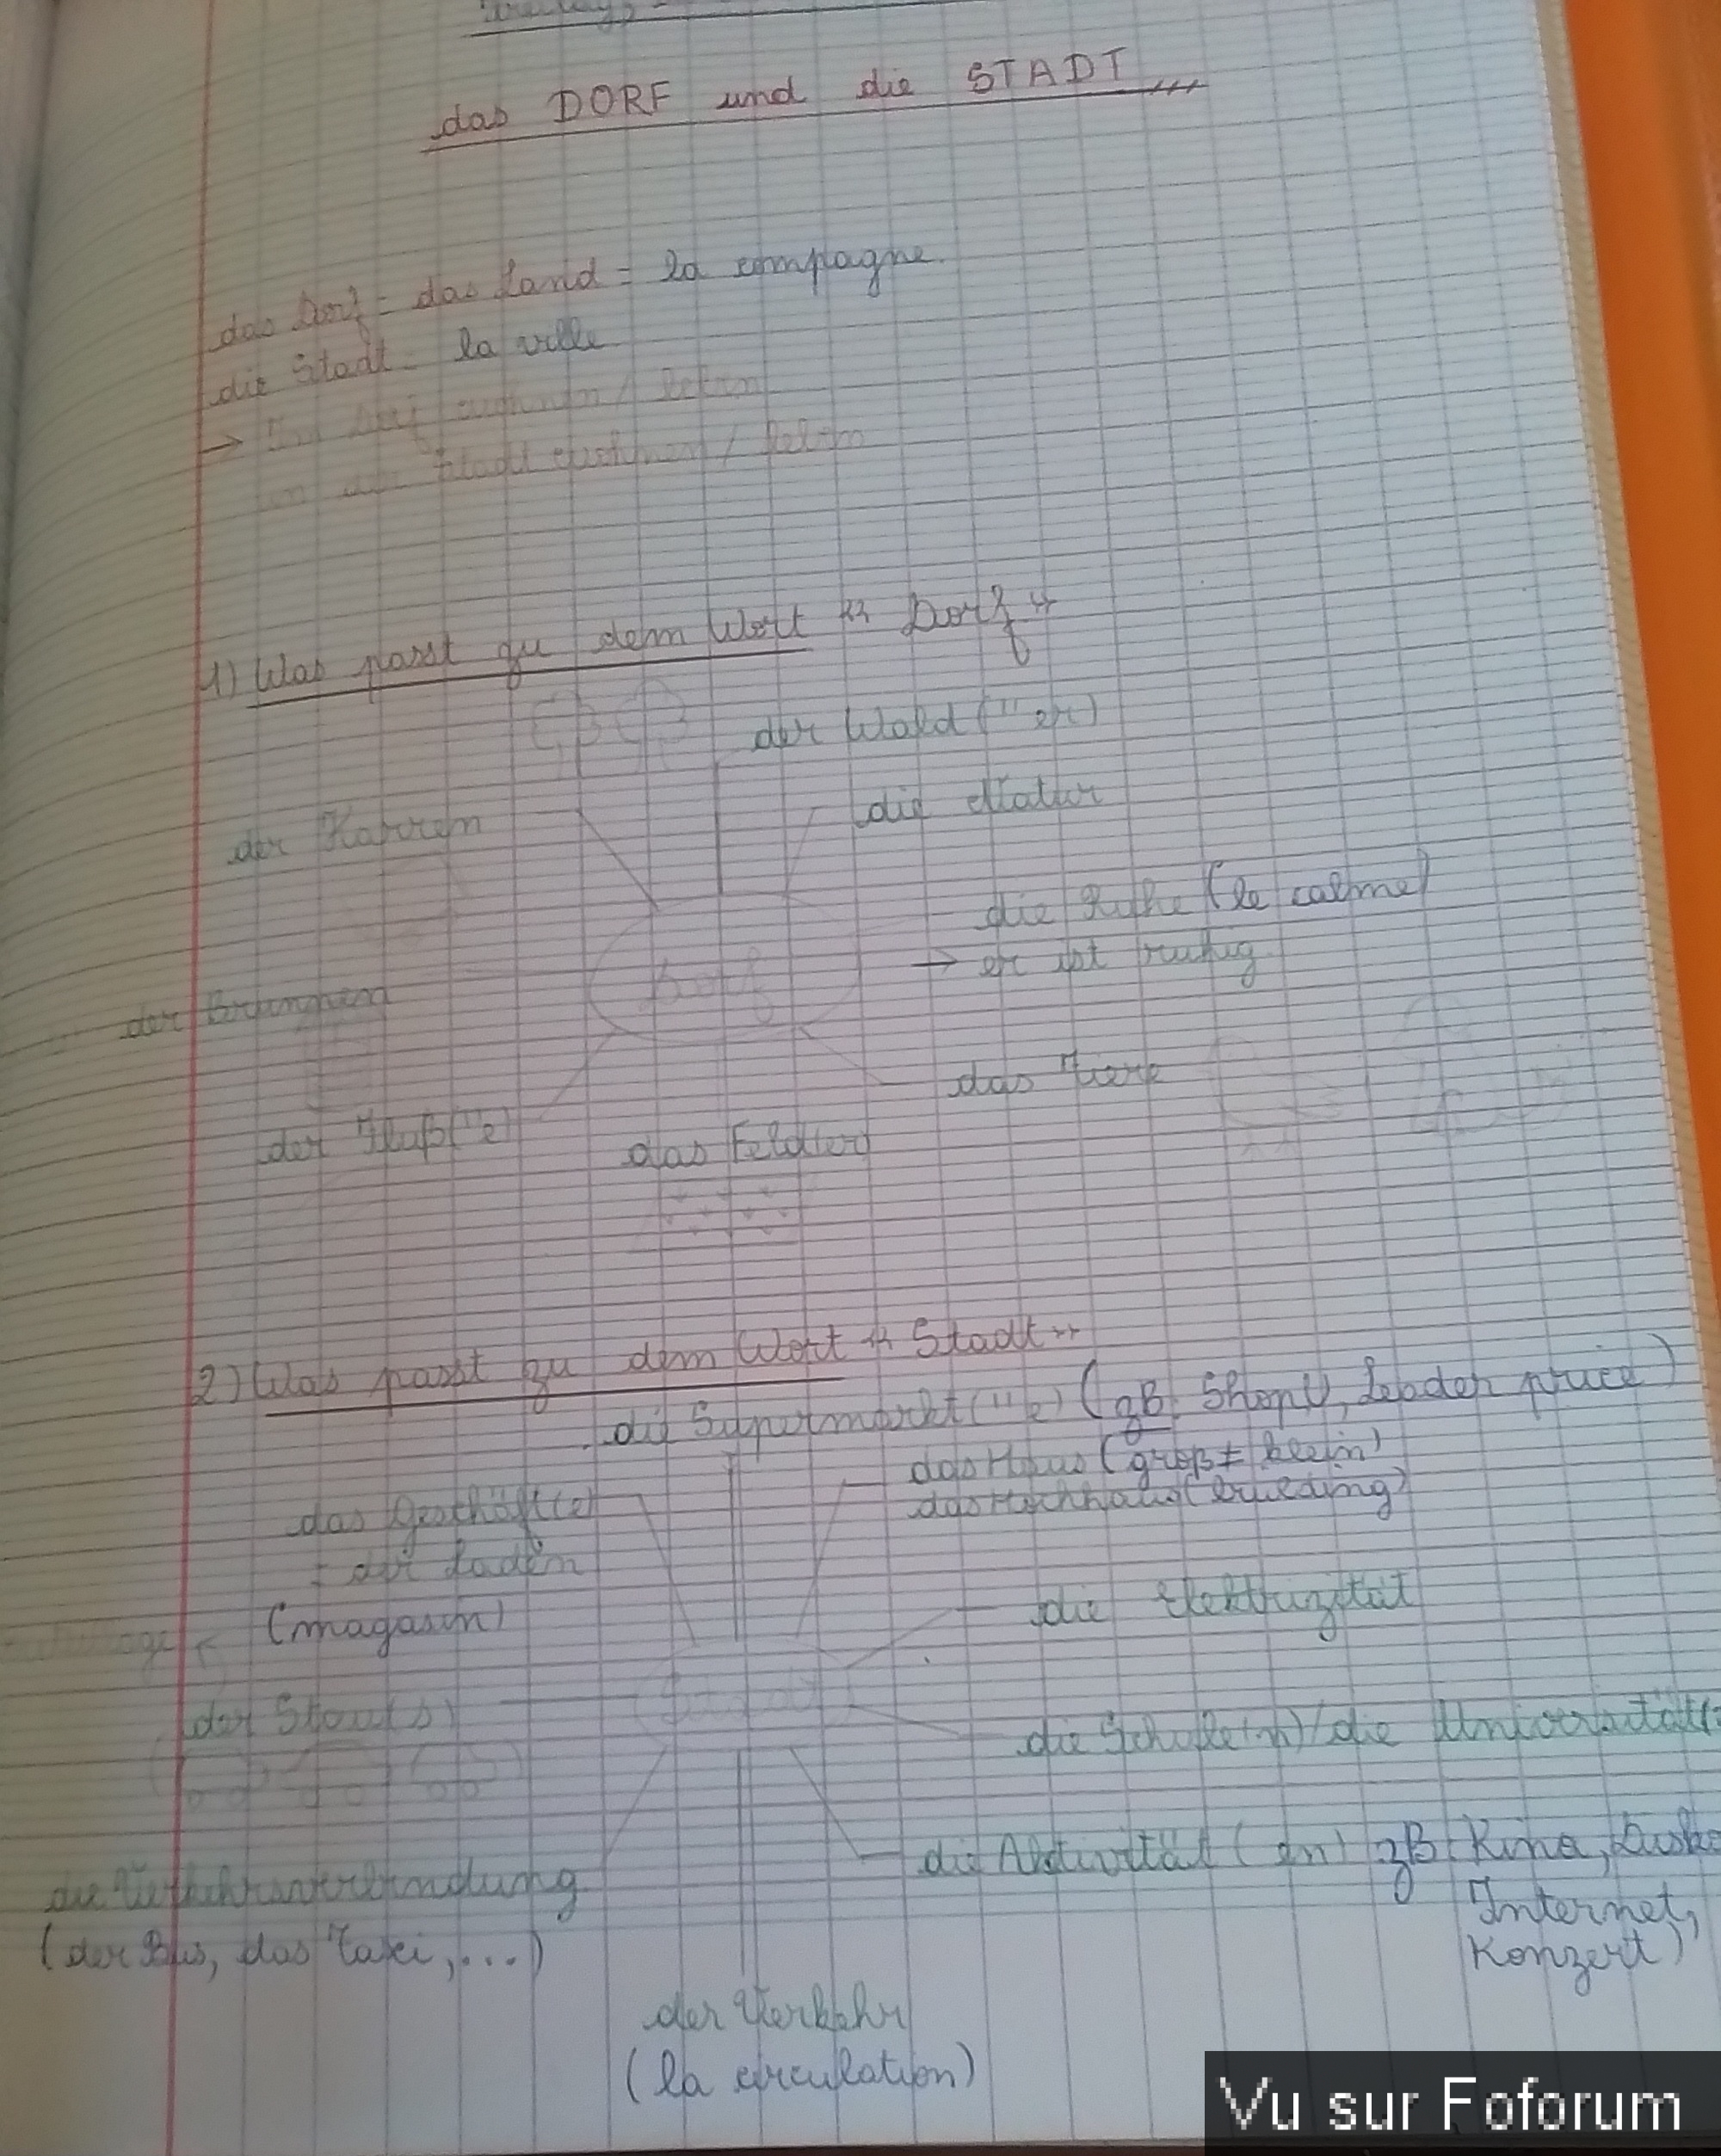 das DORF und die STADT
das Dorf = das Land = la compagne.
die Stadt = la ville
→ Im Dorf wohnen / leben
in der Stadt wohnen / leben
1) Was passt zu dem Wort « Dorf »
der Wald ("er)
die Natur
der Karren
die Ruhe (le calme)
→ er ist ruhig
Dorf
der
das Tiere
der Fluß ("e)
das Feld(er)
2) Was passt zu dem Wort « Stadt »
die Supermarkt ("e) (zB: ShopU, Leader price)
das Haus (groß ≠ klein)
das Hochhaus (
das Geschäft(e)
= der Laden
(magasin)
die Elektrizität
Stadt
der Stau(s)
die Schule(n)/die Universität(
die Aktivität (en) zB: Kino, Disko
Internet,
Konzert)
die Verkehrsverbindung
(der Bus, das Taxi, ...)
der Verkehr
(la circulation)
Vu sur Foforum